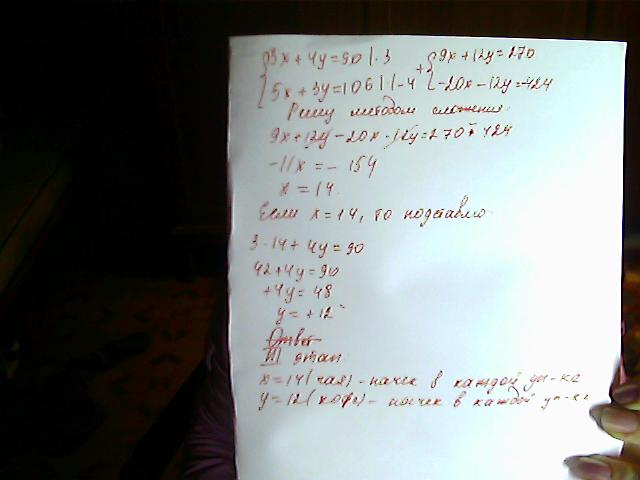 {3x + 4y = 90 | · 3 + {9x + 12y = 270
{5x + 3y = 106 | · -4 {-20x - 12y = -424
Решу методом сложения.
9x + 12y - 20x - 12y = 270 - 424
-11x = - 154
x = 14.
Если x = 14, то подставлю.
3 · 14 + 4y = 90
42 + 4y = 90
+4y = 48
y = + 12
Ответ
III этап
x = 14 (чая) - пачек в каждой уп-ке
y = 12 (кофе) - пачек в каждой уп-ке